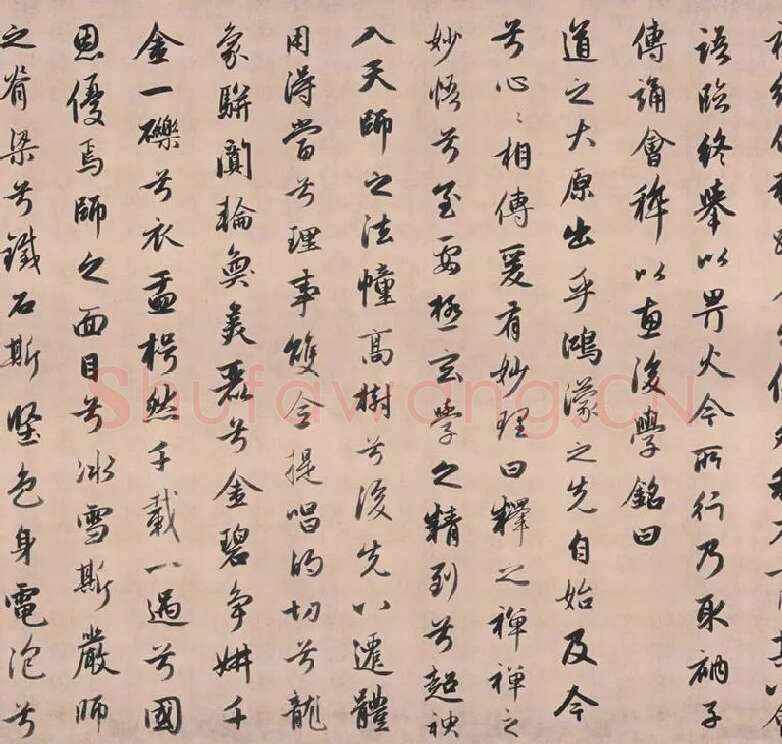 語臨終舉以畀火今所行乃取衲子
傳誦會稡以惠後學銘曰
道之大原出乎鴻濛之先自始及今
兮心〻相傳爰有妙理曰釋之禪禪之
妙悟兮至要極玄學之精到兮超神
入天師之法幢高樹兮後先八遷體
用得當兮理事雙全提唱的切兮龍
象駢闐輪奐美麗兮金碧爭妍千
金一礫兮衣盂枵然千載一遇兮國
恩優焉師之面目兮冰雪斯嚴師
之脊梁兮鐵石斯堅色身電泡兮
Shufawang.CN